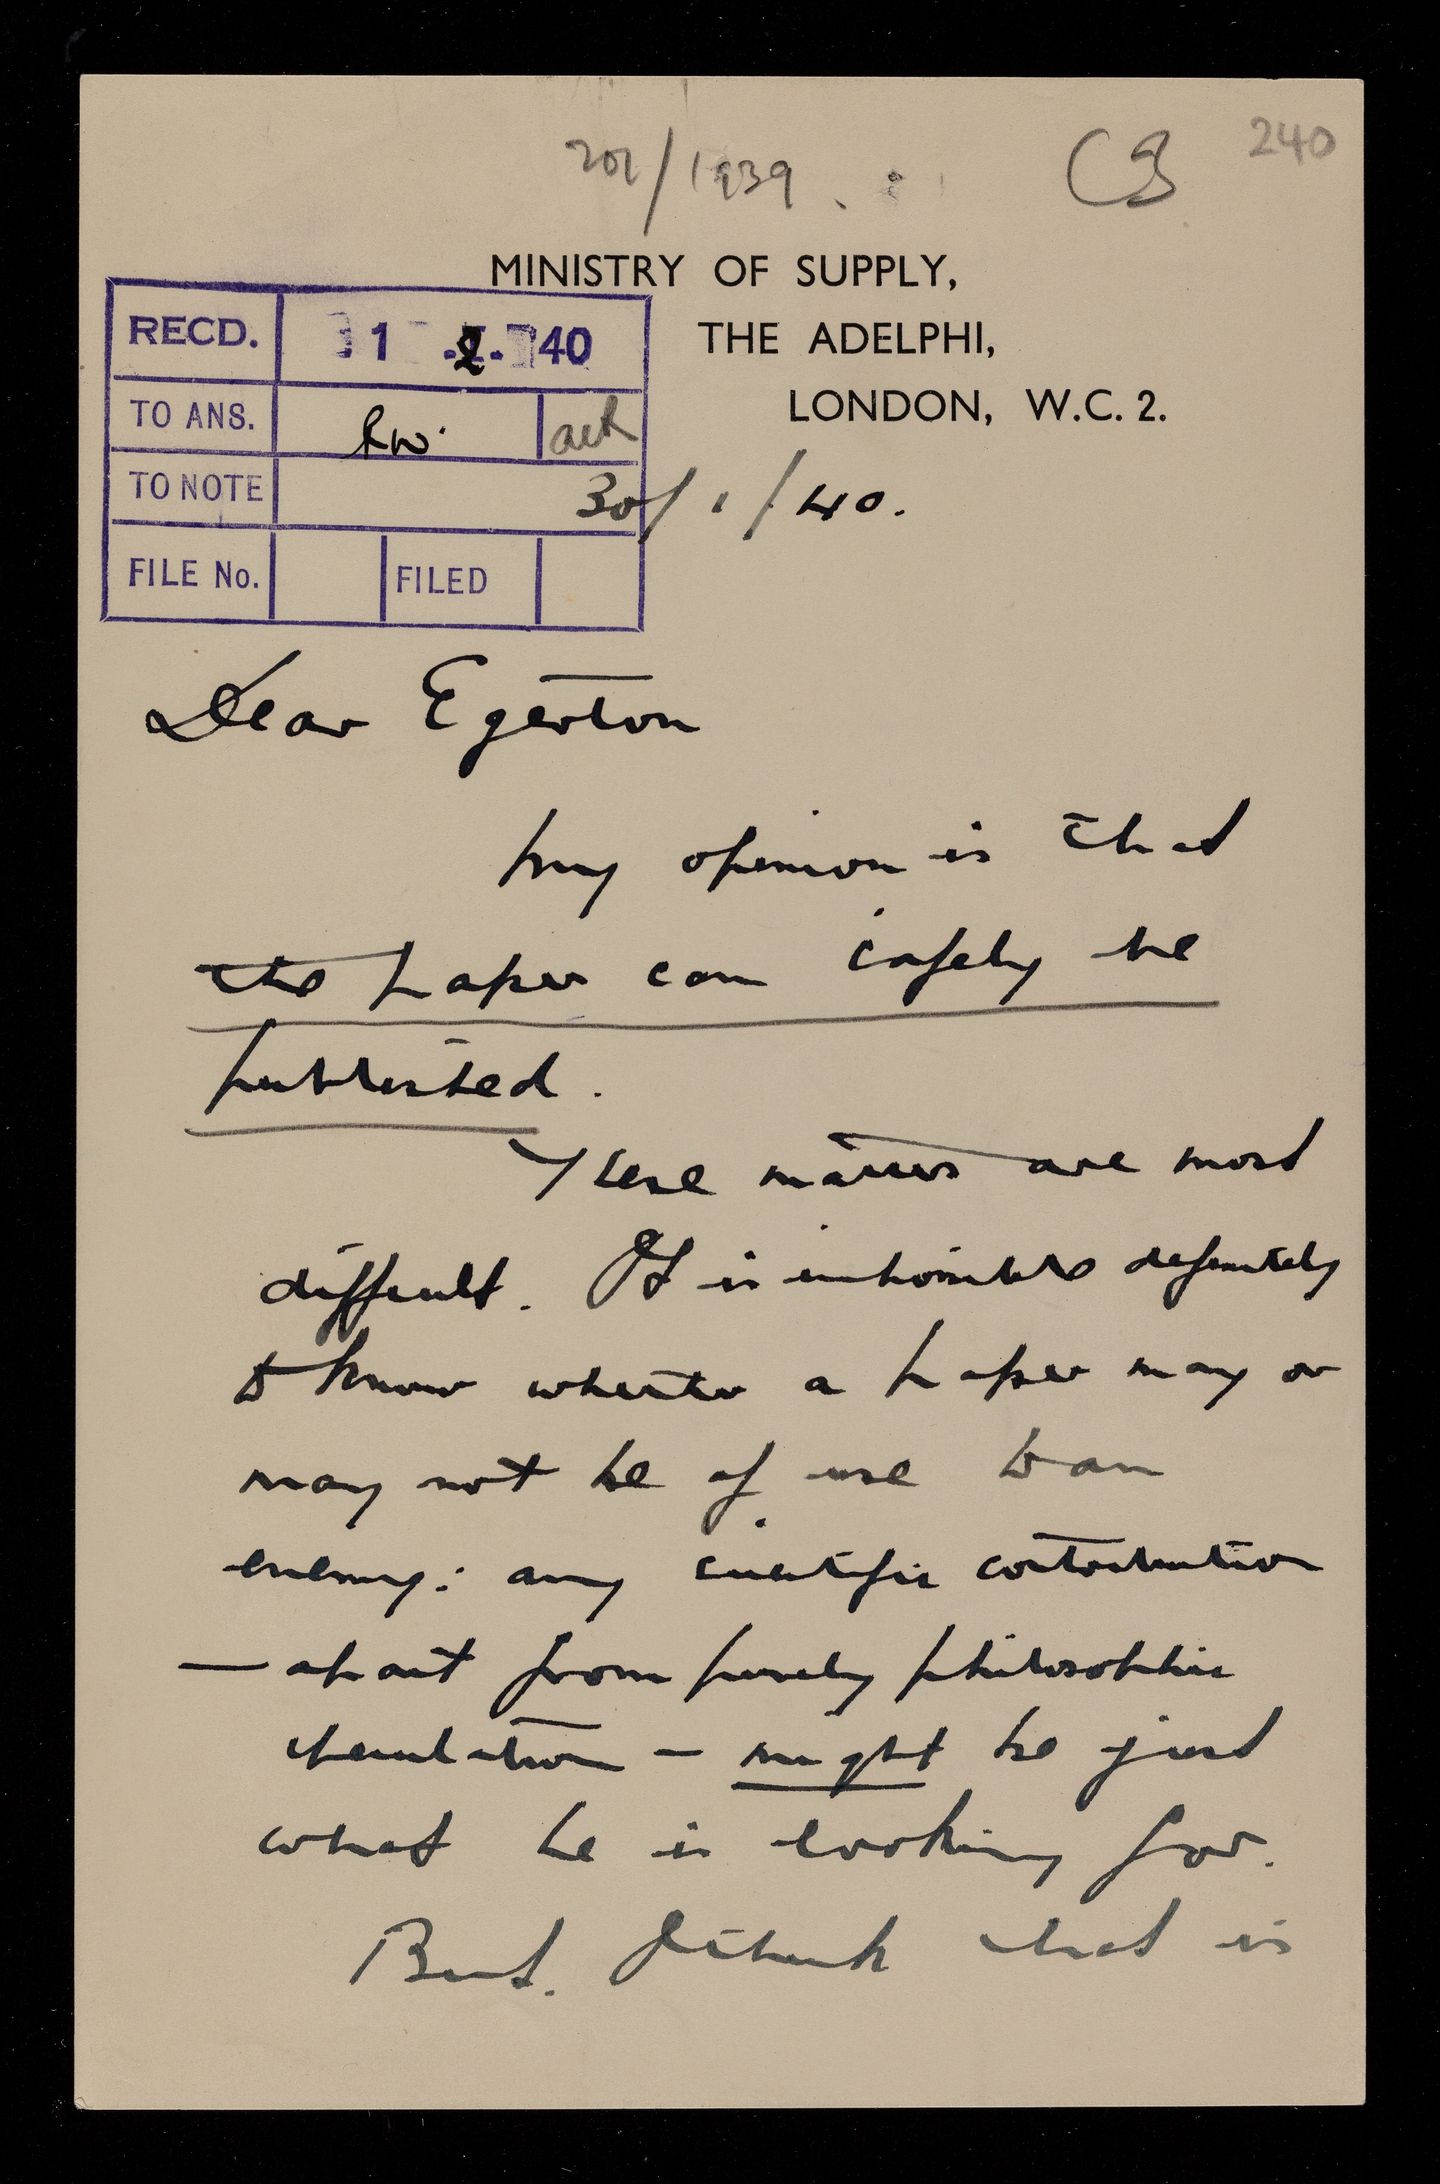 202/1939.
CB 240
MINISTRY OF SUPPLY,
THE ADELPHI,
LONDON, W.C. 2.
RECD. 31 -2- 40
TO ANS. RW. ack
TO NOTE
FILE No. FILED
30/1/40.
Dear Egerton
My opinion is that
the paper can safely be
published.
These matters are most
difficult. It is impossible definitely
to know whether a paper may or
may not be of use to an
enemy: any scientific contribution
— apart from purely philosophic
speculation — might be just
what he is looking for.
But I think that is